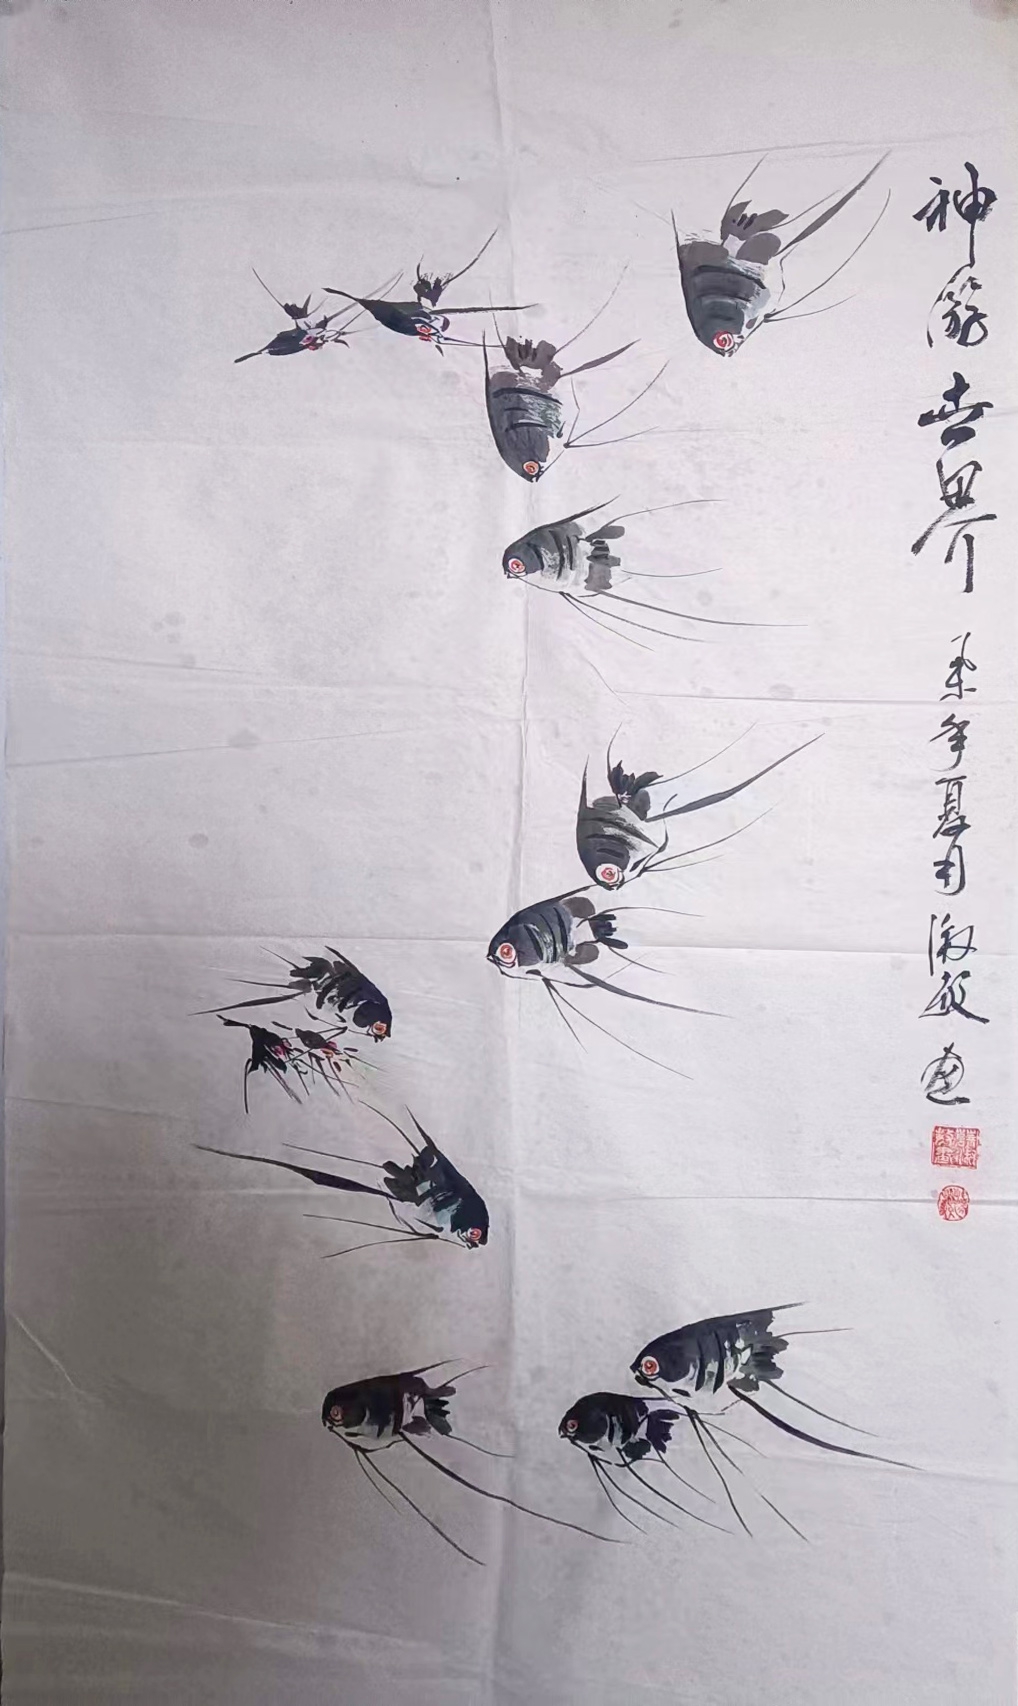 神游世界 年夏月淑敏画